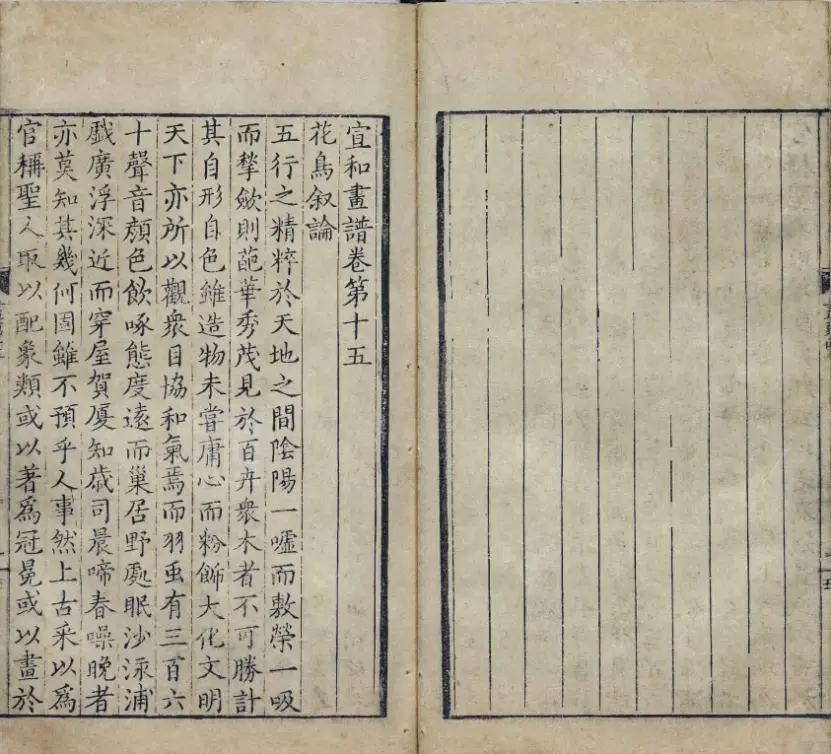 宣和畫譜卷第十五
花鳥叙論
五行之精粹於天地之間陰陽一噓而敷榮一吸
而揫斂則葩華秀茂見於百卉衆木者不可勝計
其自形自色雖造物未嘗庸心而粉飾大化文明
天下亦所以觀衆目協和氣焉而羽虫有三百六
十聲音顔色飲啄態度遠而巢居野處眠沙泳浦
戲廣浮深近而穿屋賀厦知歳司晨啼春噪晚者
亦莫知其幾何固雖不預乎人事然上古采以爲
官稱聖人取以配象類或以著爲冠冕或以畫於